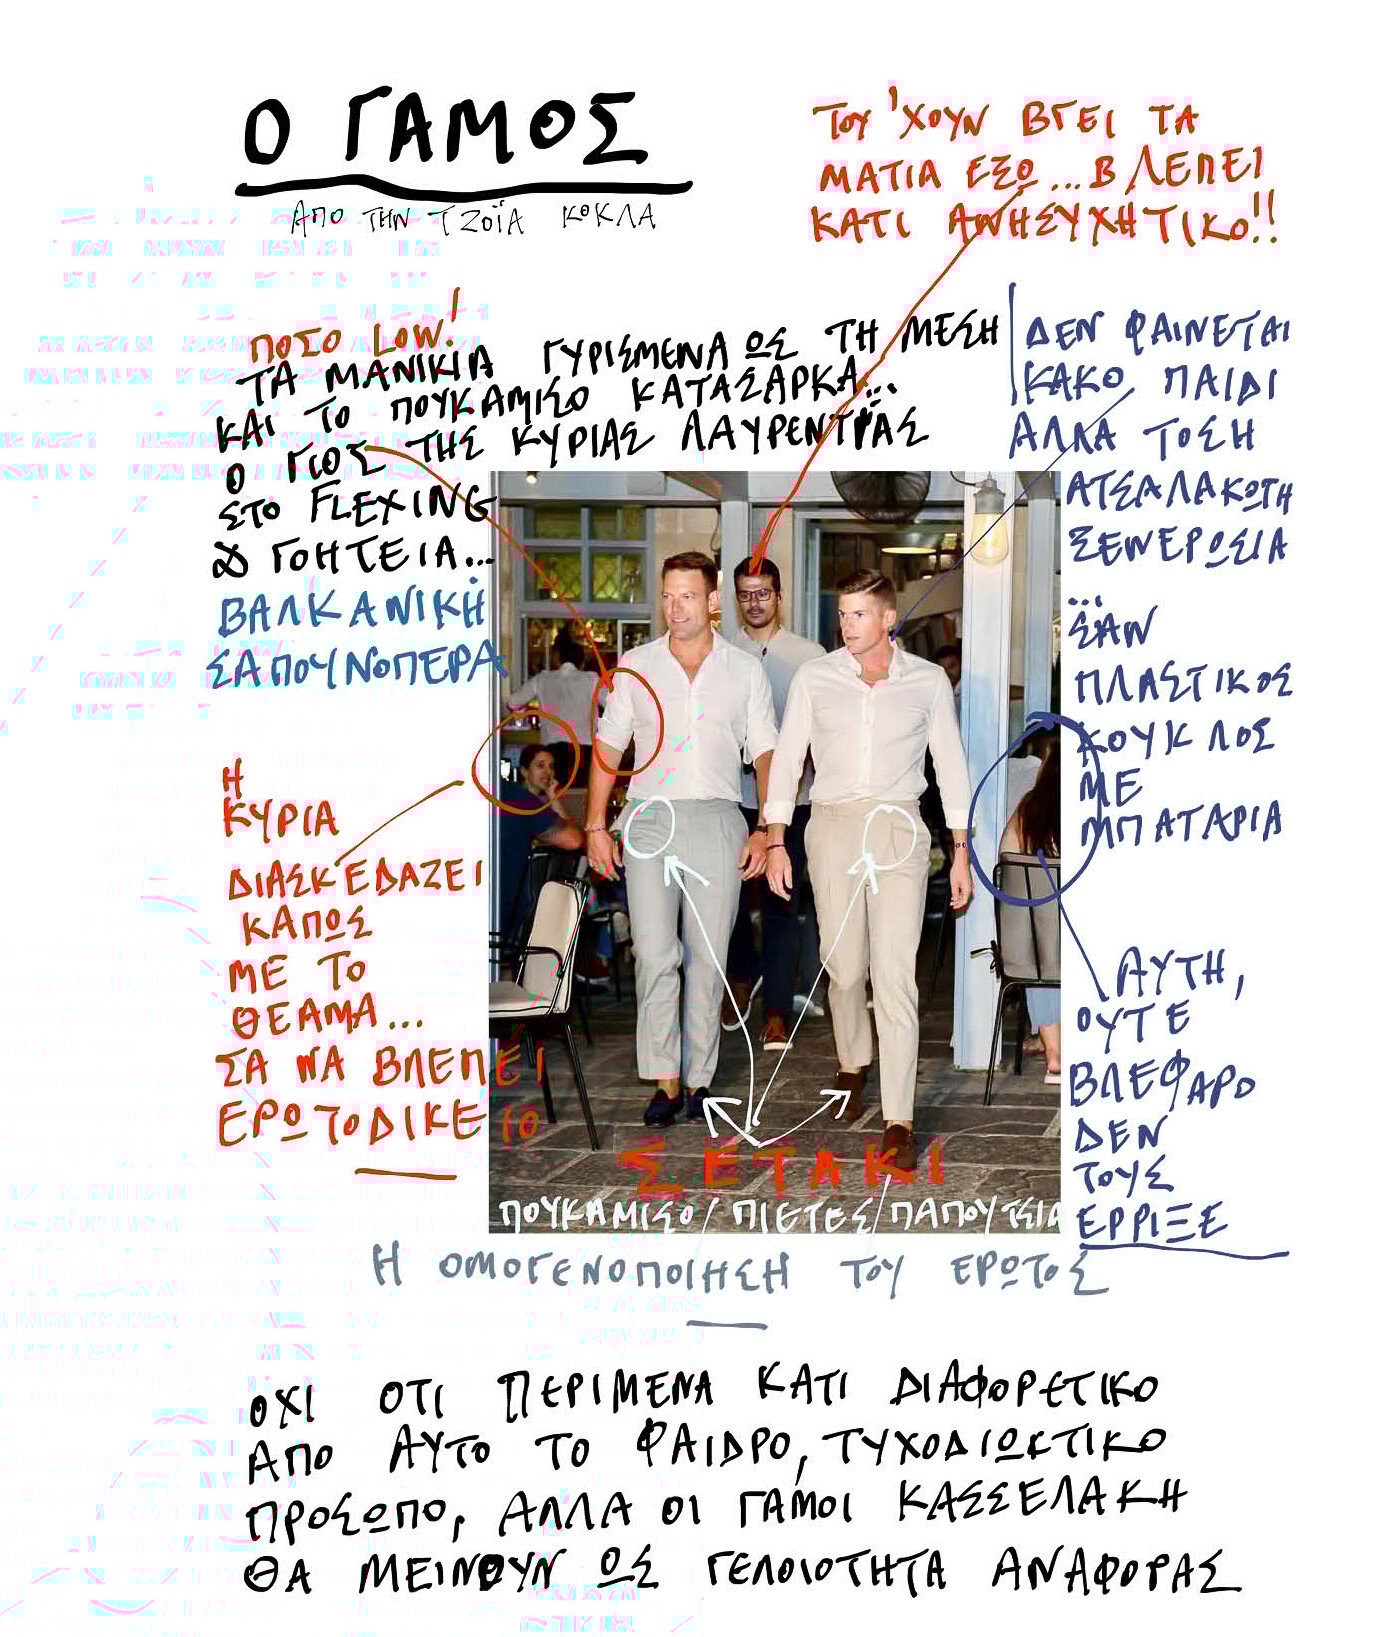 Ο ΓΑΜΟΣ
ΑΠΟ ΤΗΝ ΤΖΟΪΑ ΚΟΚΛΑ
ΤΟΥ 'ΧΟΥΝ ΒΓΕΙ ΤΑ
ΜΑΤΙΑ ΕΞΩ...ΒΛΕΠΕΙ
ΚΑΤΙ ΑΝΗΣΥΧΗΤΙΚΟ!!
ΠΟΣΟ LOW!
ΤΑ ΜΑΝΙΚΙΑ ΓΥΡΙΣΜΕΝΑ ΩΣ ΤΗ ΜΕΣΗ
ΚΑΙ ΤΟ ΠΟΥΚΑΜΙΣΟ ΚΑΤΑΣΑΡΚΑ...
Ο ΓΙΟΣ ΤΗΣ ΚΥΡΙΑΣ ΛΑΥΡΕΝΤΙΑΣ
ΣΤΟ FLEXING
& ΓΟΗΤΕΙΑ...
ΒΑΛΚΑΝΙΚΗ
ΣΑΠΟΥΝΟΠΕΡΑ
ΔΕΝ ΦΑΙΝΕΤΑΙ
ΚΑΚΟ ΠΑΙΔΙ
ΑΛΛΑ ΤΟΣΗ
ΑΤΣΑΛΑΚΩΤΗ
ΞΕΝΕΡΩΣΙΑ
...
ΣΑΝ
ΠΛΑΣΤΙΚΟΣ
ΚΟΥΚΛΟΣ
ΜΕ
ΜΠΑΤΑΡΙΑ
Η
ΚΥΡΙΑ
ΔΙΑΣΚΕΔΑΖΕΙ
ΚΑΠΩΣ
ΜΕ ΤΟ
ΘΕΑΜΑ...
ΣΑ ΝΑ ΒΛΕΠΕΙ
ΕΡΩΤΟΔΙΚΕΙΟ
ΑΥΤΗ,
ΟΥΤΕ
ΒΛΕΦΑΡΟ
ΔΕΝ
ΤΟΥΣ
ΕΡΡΙΞΕ
ΣΕΤΑΚΙ
ΠΟΥΚΑΜΙΣΟ/ΠΙΕΤΕΣ/ΠΑΠΟΥΤΣΙΑ
Η ΟΜΟΓΕΝΟΠΟΙΗΣΗ ΤΟΥ ΕΡΩΤΟΣ
ΟΧΙ ΟΤΙ ΠΕΡΙΜΕΝΑ ΚΑΤΙ ΔΙΑΦΟΡΕΤΙΚΟ
ΑΠΟ ΑΥΤΟ ΤΟ ΦΑΙΔΡΟ, ΤΥΧΟΔΙΩΚΤΙΚΟ
ΠΡΟΣΩΠΟ, ΑΛΛΑ ΟΙ ΓΑΜΟΙ ΚΑΣΣΕΛΑΚΗ
ΘΑ ΜΕΙΝΟΥΝ ΩΣ ΓΕΛΟΙΟΤΗΤΑ ΑΝΑΦΟΡΑΣ